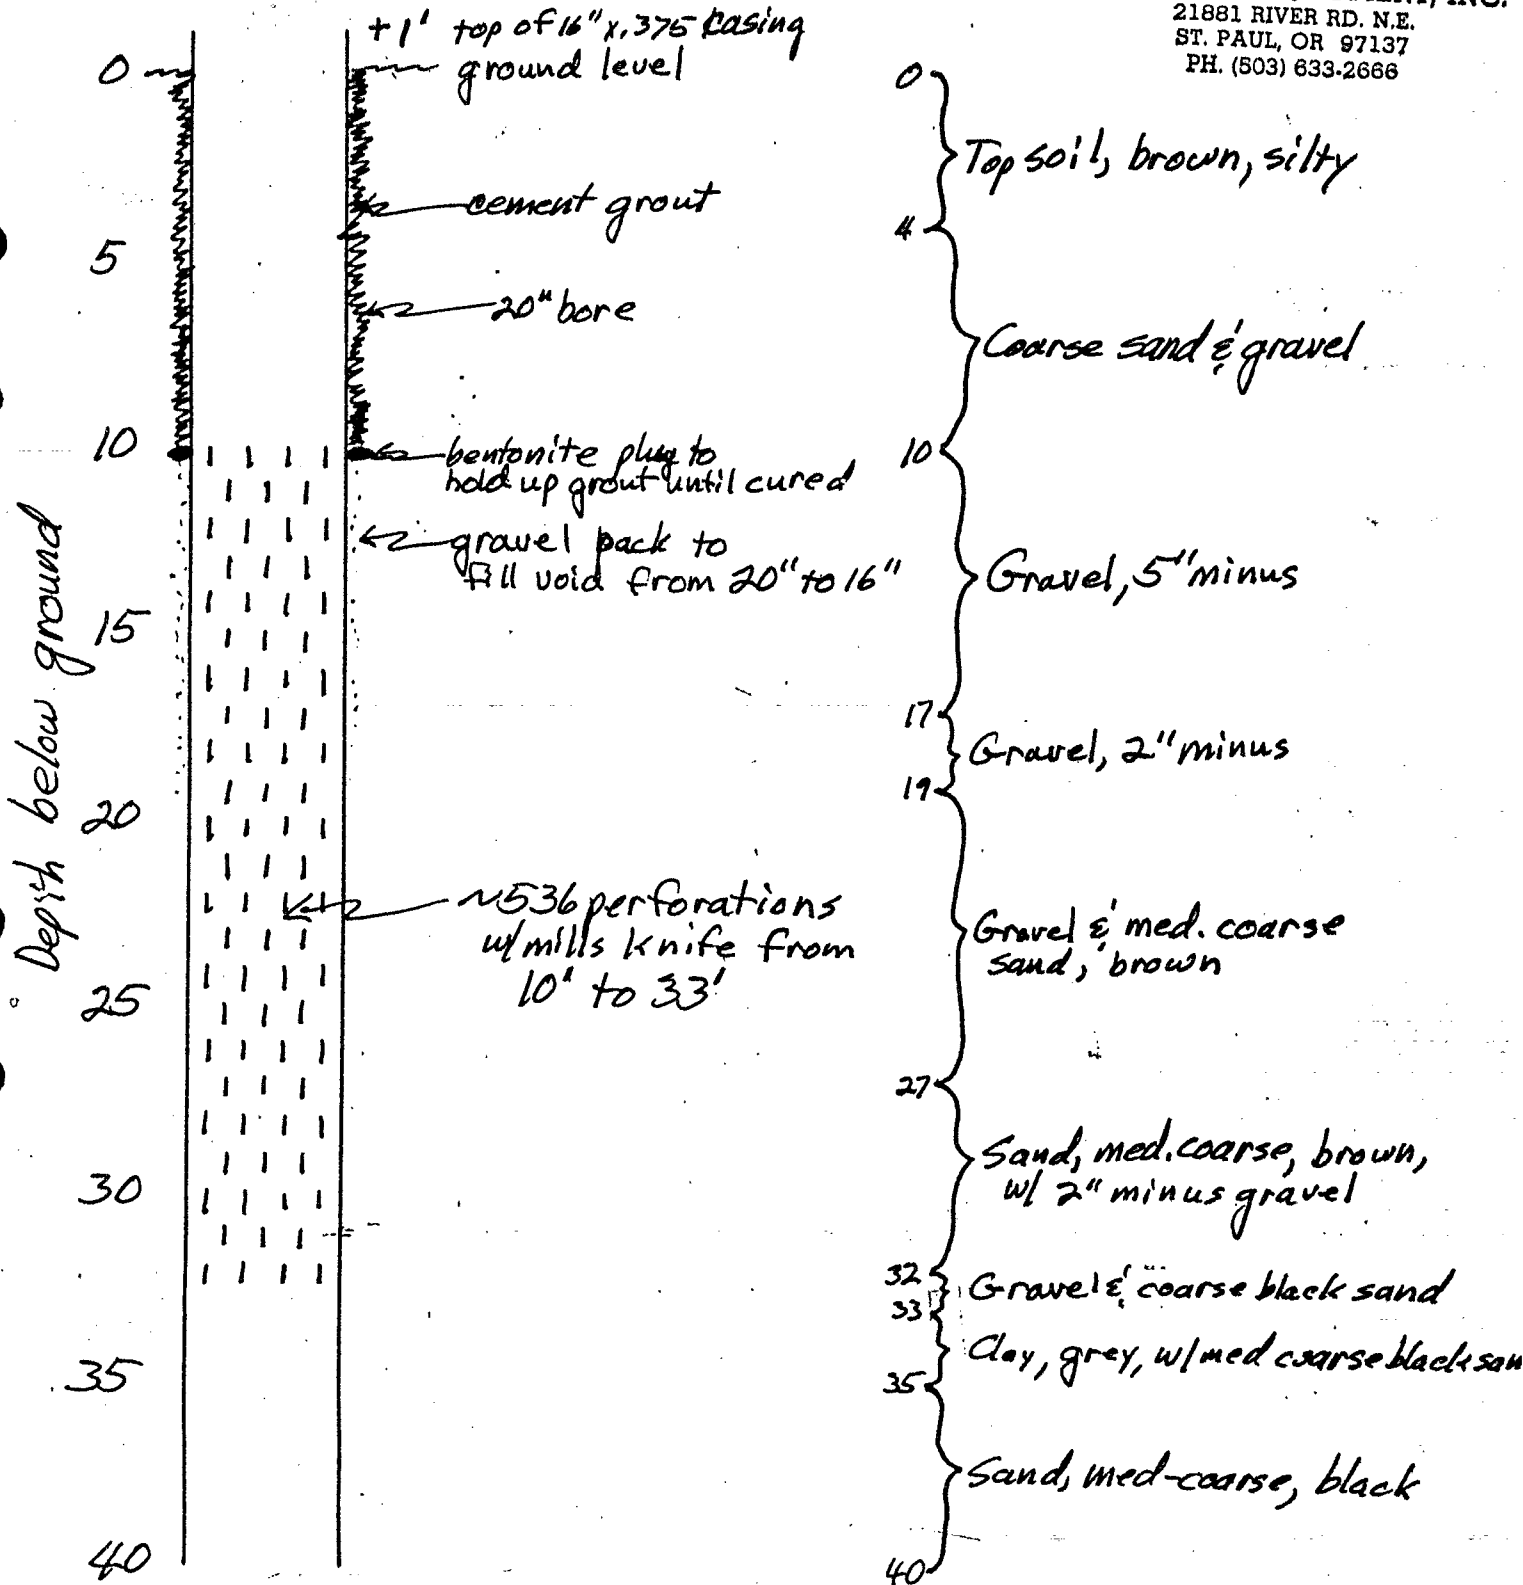 INC.
21881 RIVER RD. N.E.
ST. PAUL, OR 97137
PH. (503) 633-2666
+1' top of 16" x .375 casing
ground level
cement grout
20" bore
bentonite plug to
hold up grout until cured
gravel pack to
fill void from 20" to 16"
~536 perforations
w/ mills knife from
10' to 33'
Depth below ground
0
5
10
15
20
25
30
35
40
0
Top soil, brown, silty
4
Coarse sand & gravel
10
Gravel, 5" minus
17
Gravel, 2" minus
19
Gravel & med. coarse
sand, brown
27
Sand, med. coarse, brown,
w/ 2" minus gravel
32
Gravel & coarse black sand
33
Clay, grey, w/ med coarse black san
35
Sand, med-coarse, black
40